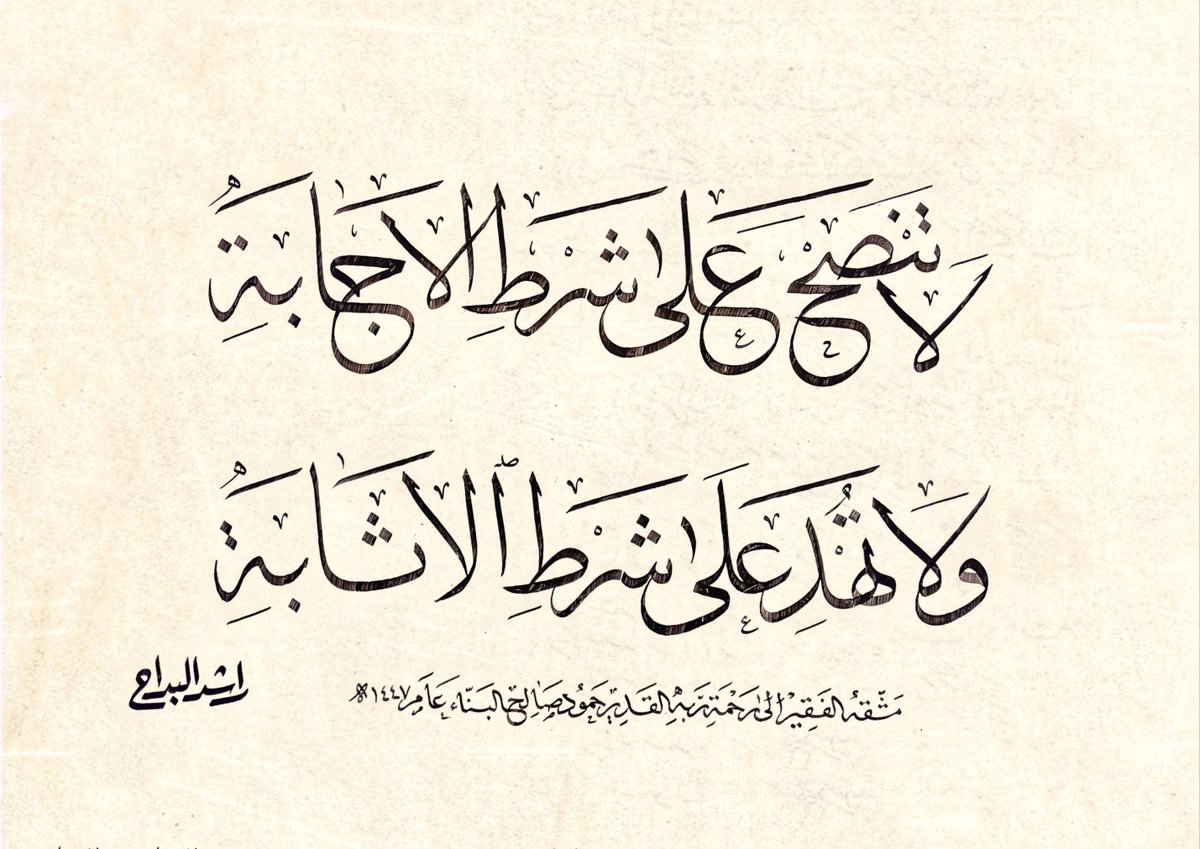 لَا تَنْصَحْ عَلَى شَرْطِ الاجَابَةِ
وَلَا تُهْدِ عَلَى شَرْطِ ٱلاثَابَةِ
مَشَّقَهُ الفَقِيْرُ الى رَحْمَةِ رَبِّهِ القَدِيْرِ حَمُود صَالِح البَنَّاء عَامَ ١٤٤٧ھ
راشد البداح